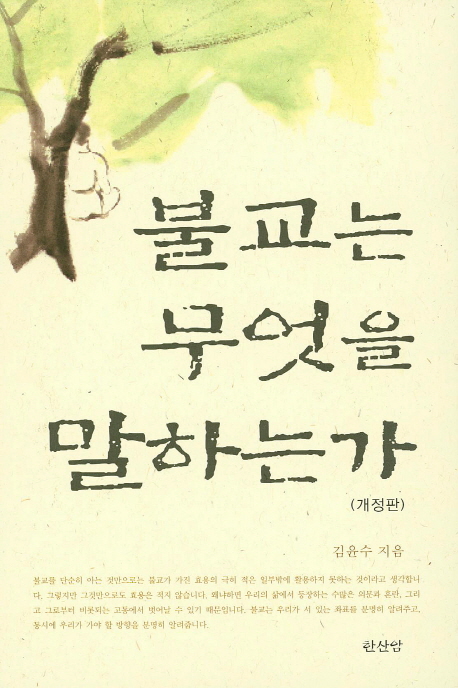 불교는
무엇을
말하는가
(개정판)
김윤수 지음
불교를 단순히 아는 것만으로는 불교가 가진 효용의 극히 적은 일부밖에 활용하지 못하는 것이라고 생각합니
다. 그렇지만 그것만으로도 효용은 적지 않습니다. 왜냐하면 우리의 삶에서 등장하는 수많은 의문과 혼란, 그리
고 그로부터 비롯되는 고통에서 벗어날 수 있기 때문입니다. 불교는 우리가 서 있는 좌표를 분명히 알려주고,
동시에 우리가 가야 할 방향을 분명히 알려줍니다.
한산암